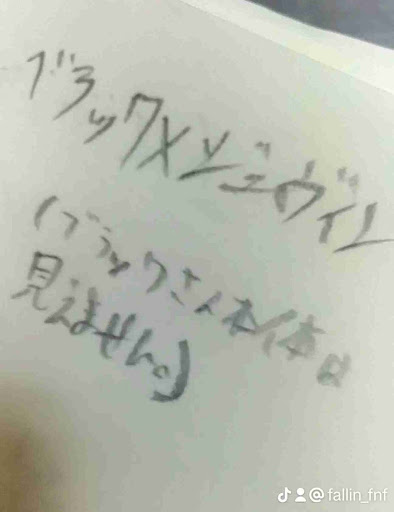 ブラック×ジェヴィン
(ブラックさん本体は
見えません。)
@fallin_fnf